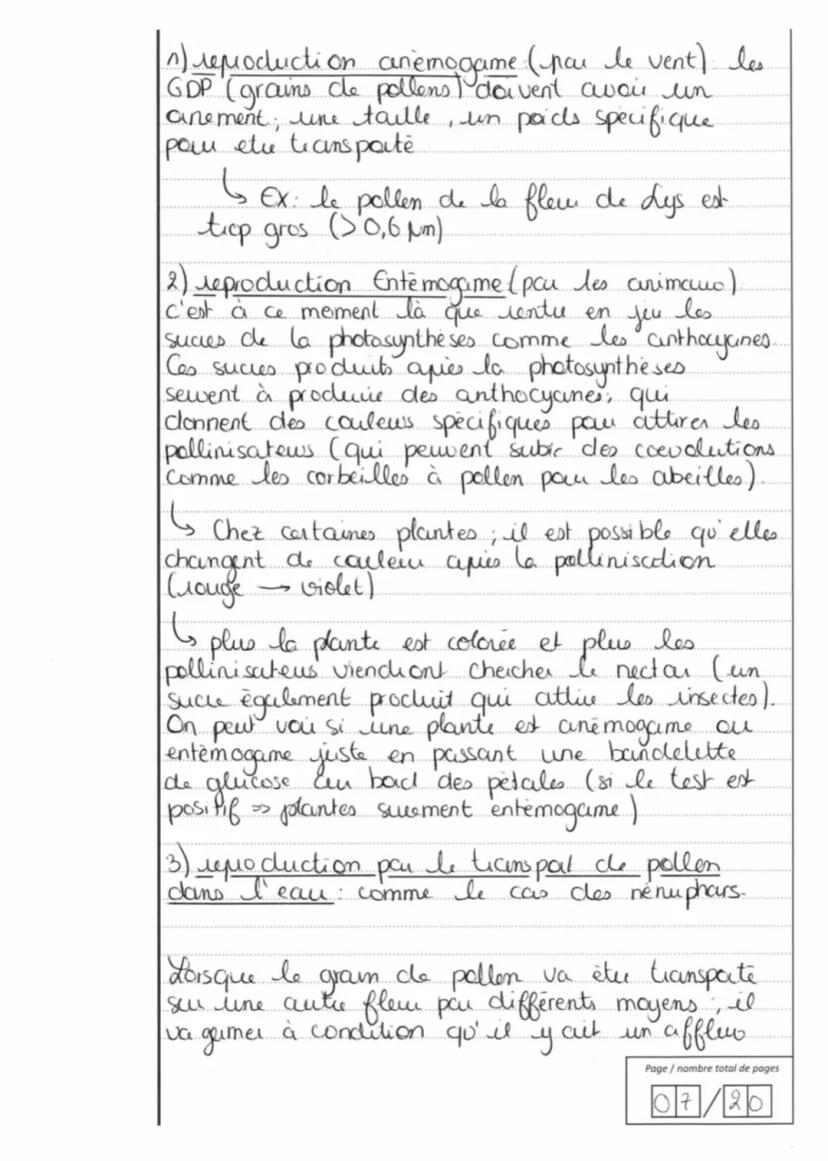 1) reproduction anèmogame (par le vent) les
GDP (grains de pollens) doivent avoir un
ornement, une taille, un poids spécifique
pour etre transporté
↳ Ex: le pollen de la fleur de Lys est
trop gros (> 0,6 µm)
2) reproduction Entèmogame (par les animaux)
c'est à ce moment là que rentre en jeu les
sucres de la photosynthèses comme les anthocyanes.
Ces sucres produits après la photosynthèses
servent à produire des anthocyanes, qui
donnent des couleurs spécifiques pour attirer les
pollinisateurs (qui peuvent subir des coevolutions
comme les corbeilles à pollen pour les abeilles).
↳ Chez certaines plantes ; il est possible qu'elles
changent de couleur après la pollinisation
(rouge → violet)
↳ plus la plante est colorée et plus les
pollinisateurs viendront chercher le nectar (un
sucre également produit qui attire les insectes).
On peut voir si une plante est anèmogame ou
entèmogame juste en passant une bandelette
de glucose au bord des pétales (si le test est
positif => plantes surement entèmogame)
3) reproduction par le transport de pollen
dans l'eau : comme le cas des nénuphars.
Lorsque le grain de pollen va être transporté
sur une autre fleur par différents moyens ; il
va germer à condition qu'il y ait un afflux
Page / nombre total de pages
07/20